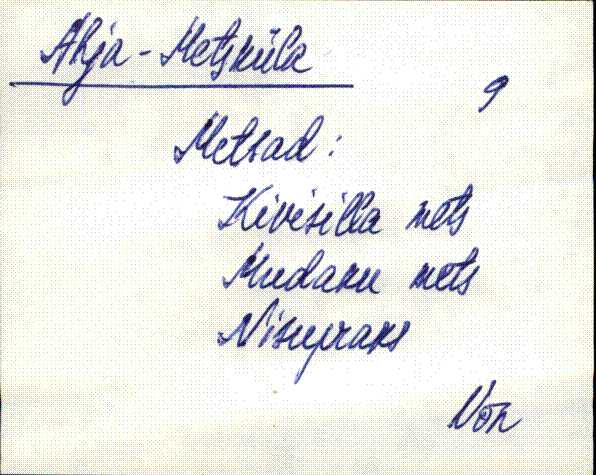 Ahja-Metsküla
9
Metsad:
Kivisilla mets
Mudaku mets
Võn